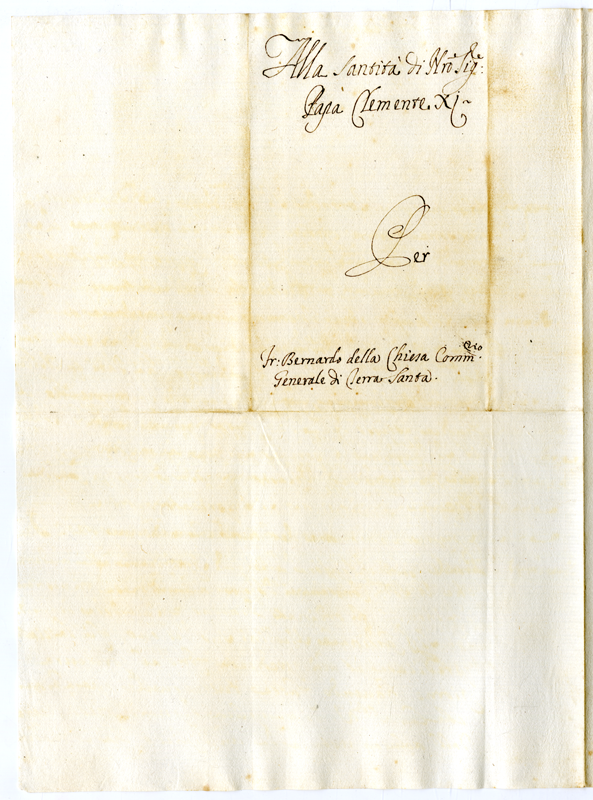 Alla Santità di Nrõ Sig.re
Papa Clemente XI
Per
Fr: Bernardo della Chiesa Comm.rio
Generale di Terra Santa.